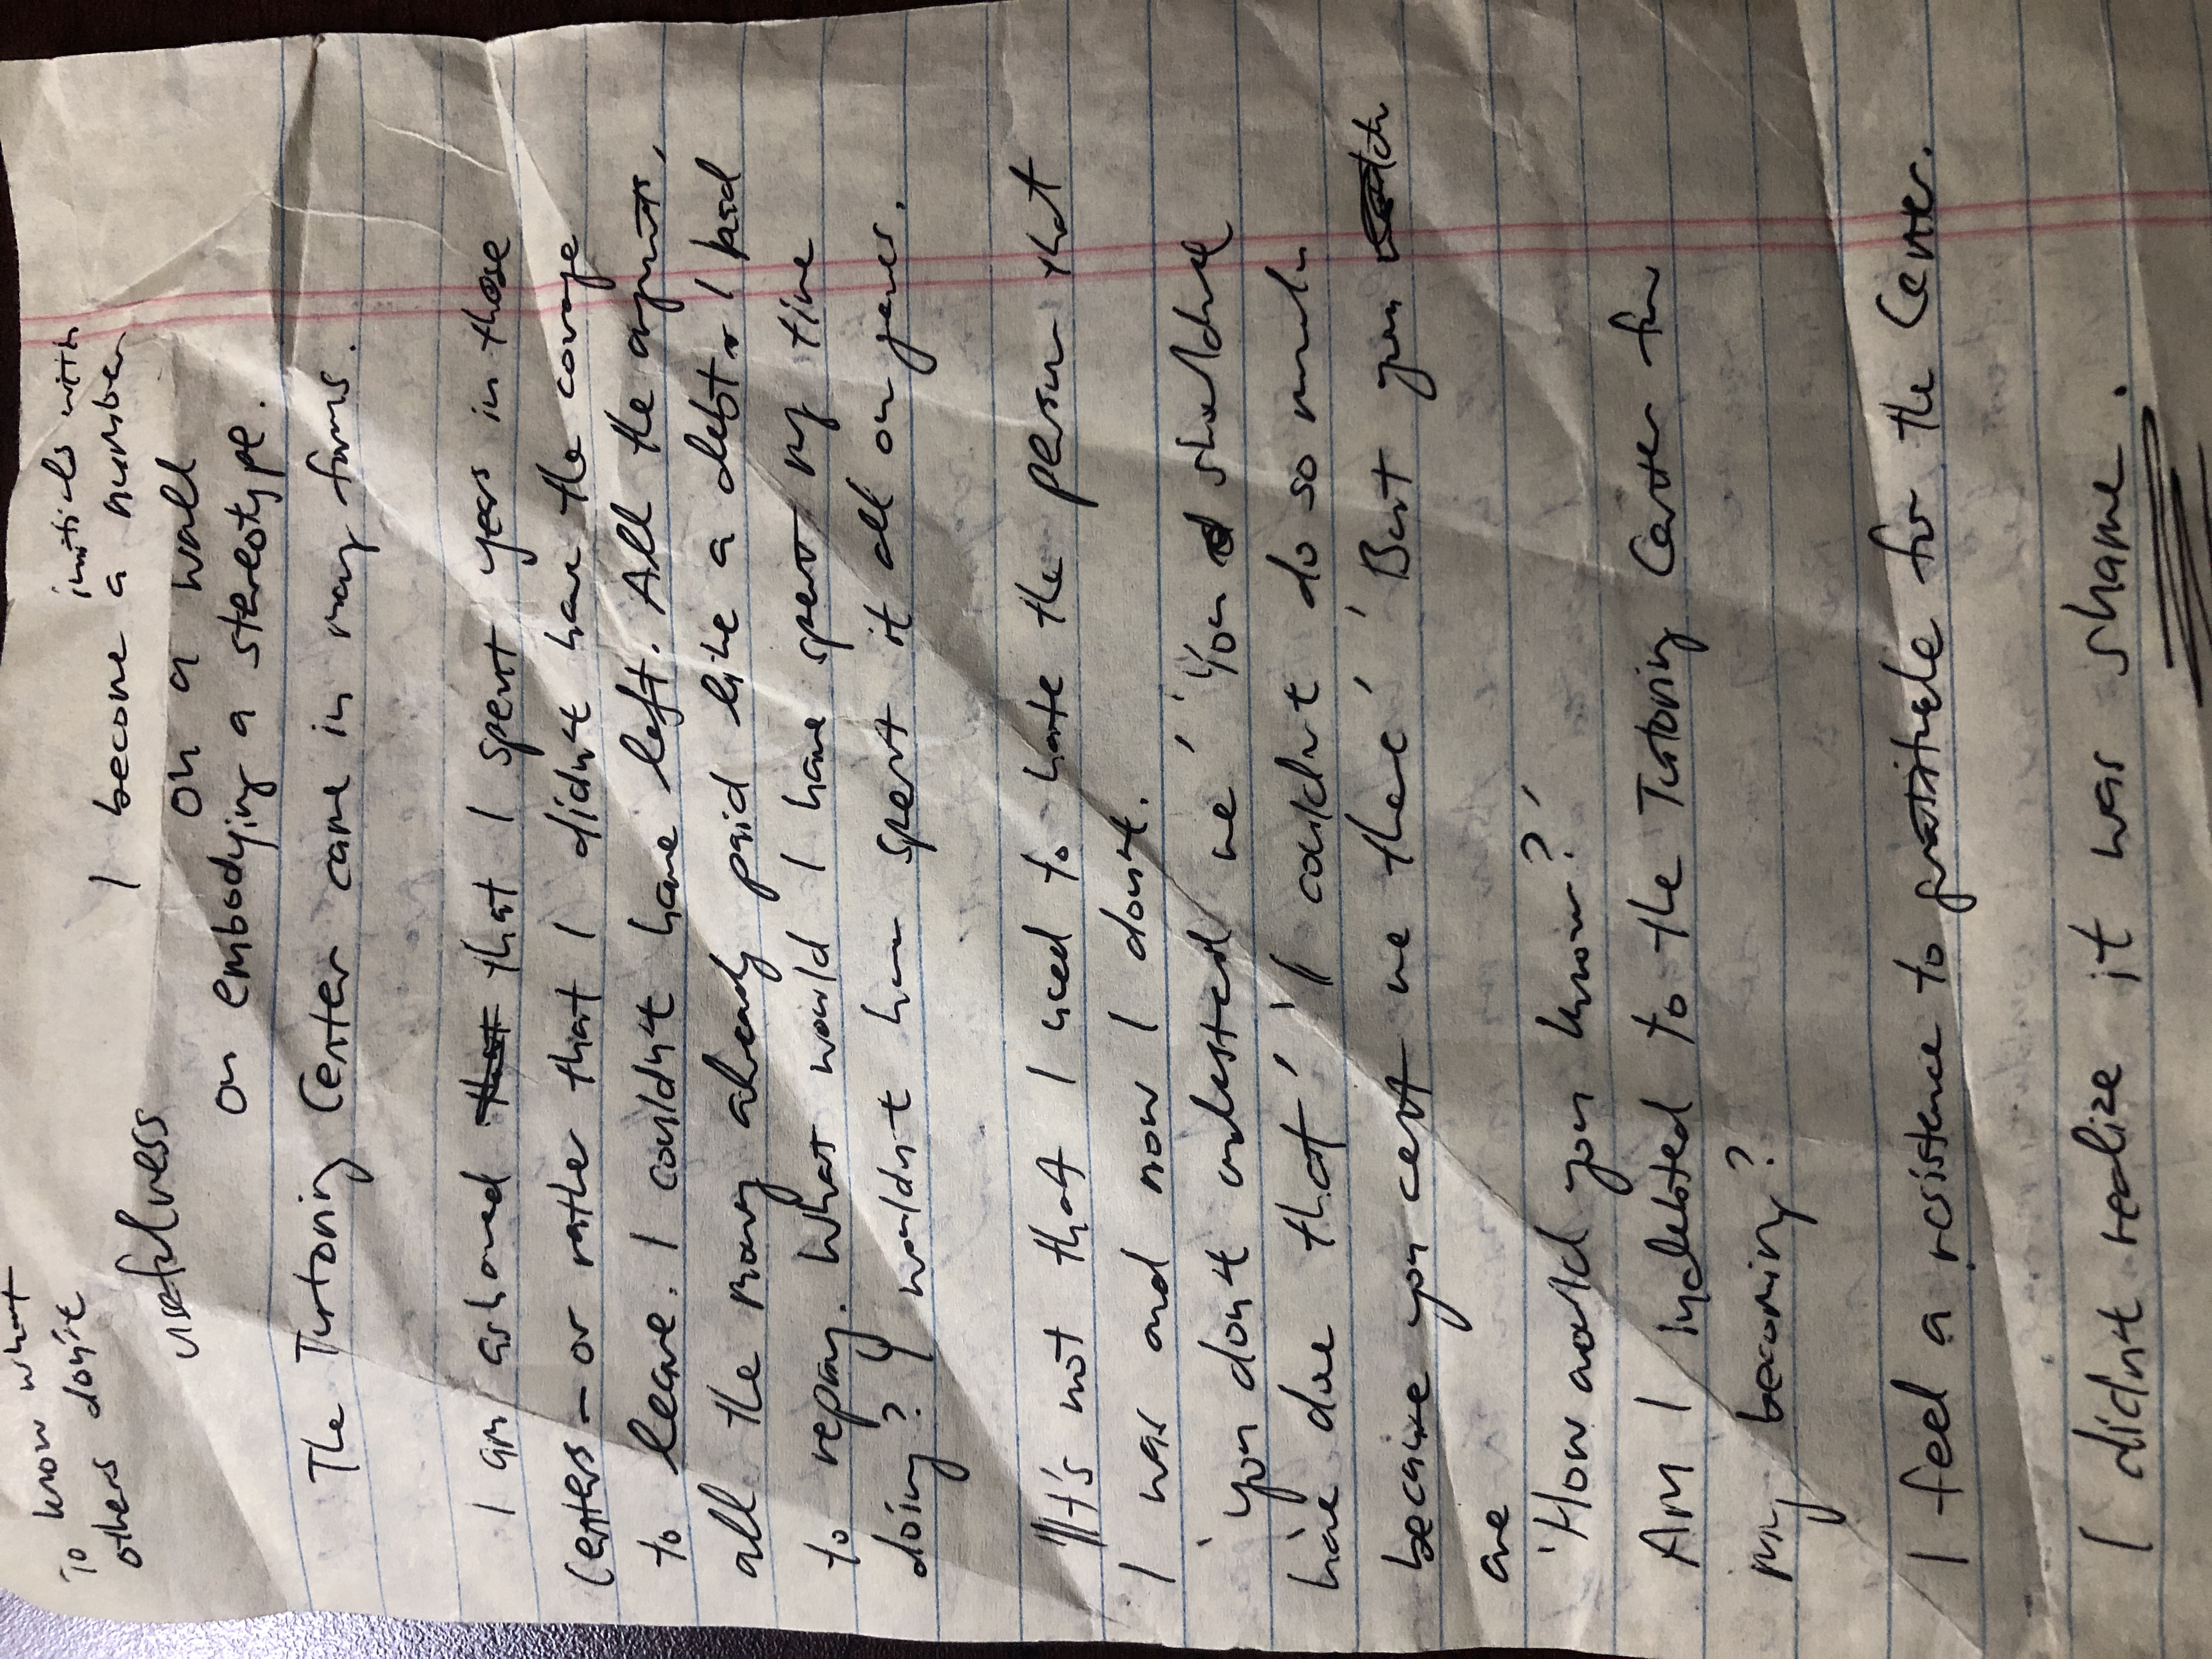 To know what
others don't
initials with
I become a number
usefulness
on a wall
on embodying a stereotype.
The Tutoring Center came in many forms.
I am ashamed that that I spent years in those
Centers – or rather that I didn't have the courage
to leave. I couldn't have left. All the arguments,
all the money already paid like a debt I paid
to repay. What would I have spent my time
doing? I wouldn't have spent it all on games.
"It's not that I used to hate the person that
I was and now I don't.
'you don't understand me', 'You shouldn't
have done that', 'I couldn't do so much
because you cent me there', But you
are
'How would you know?'
Am I indebted to the Tutoring Center for
my becoming?
I feel a resistence to gratitude for the Center.
I didnt realize it was shame.